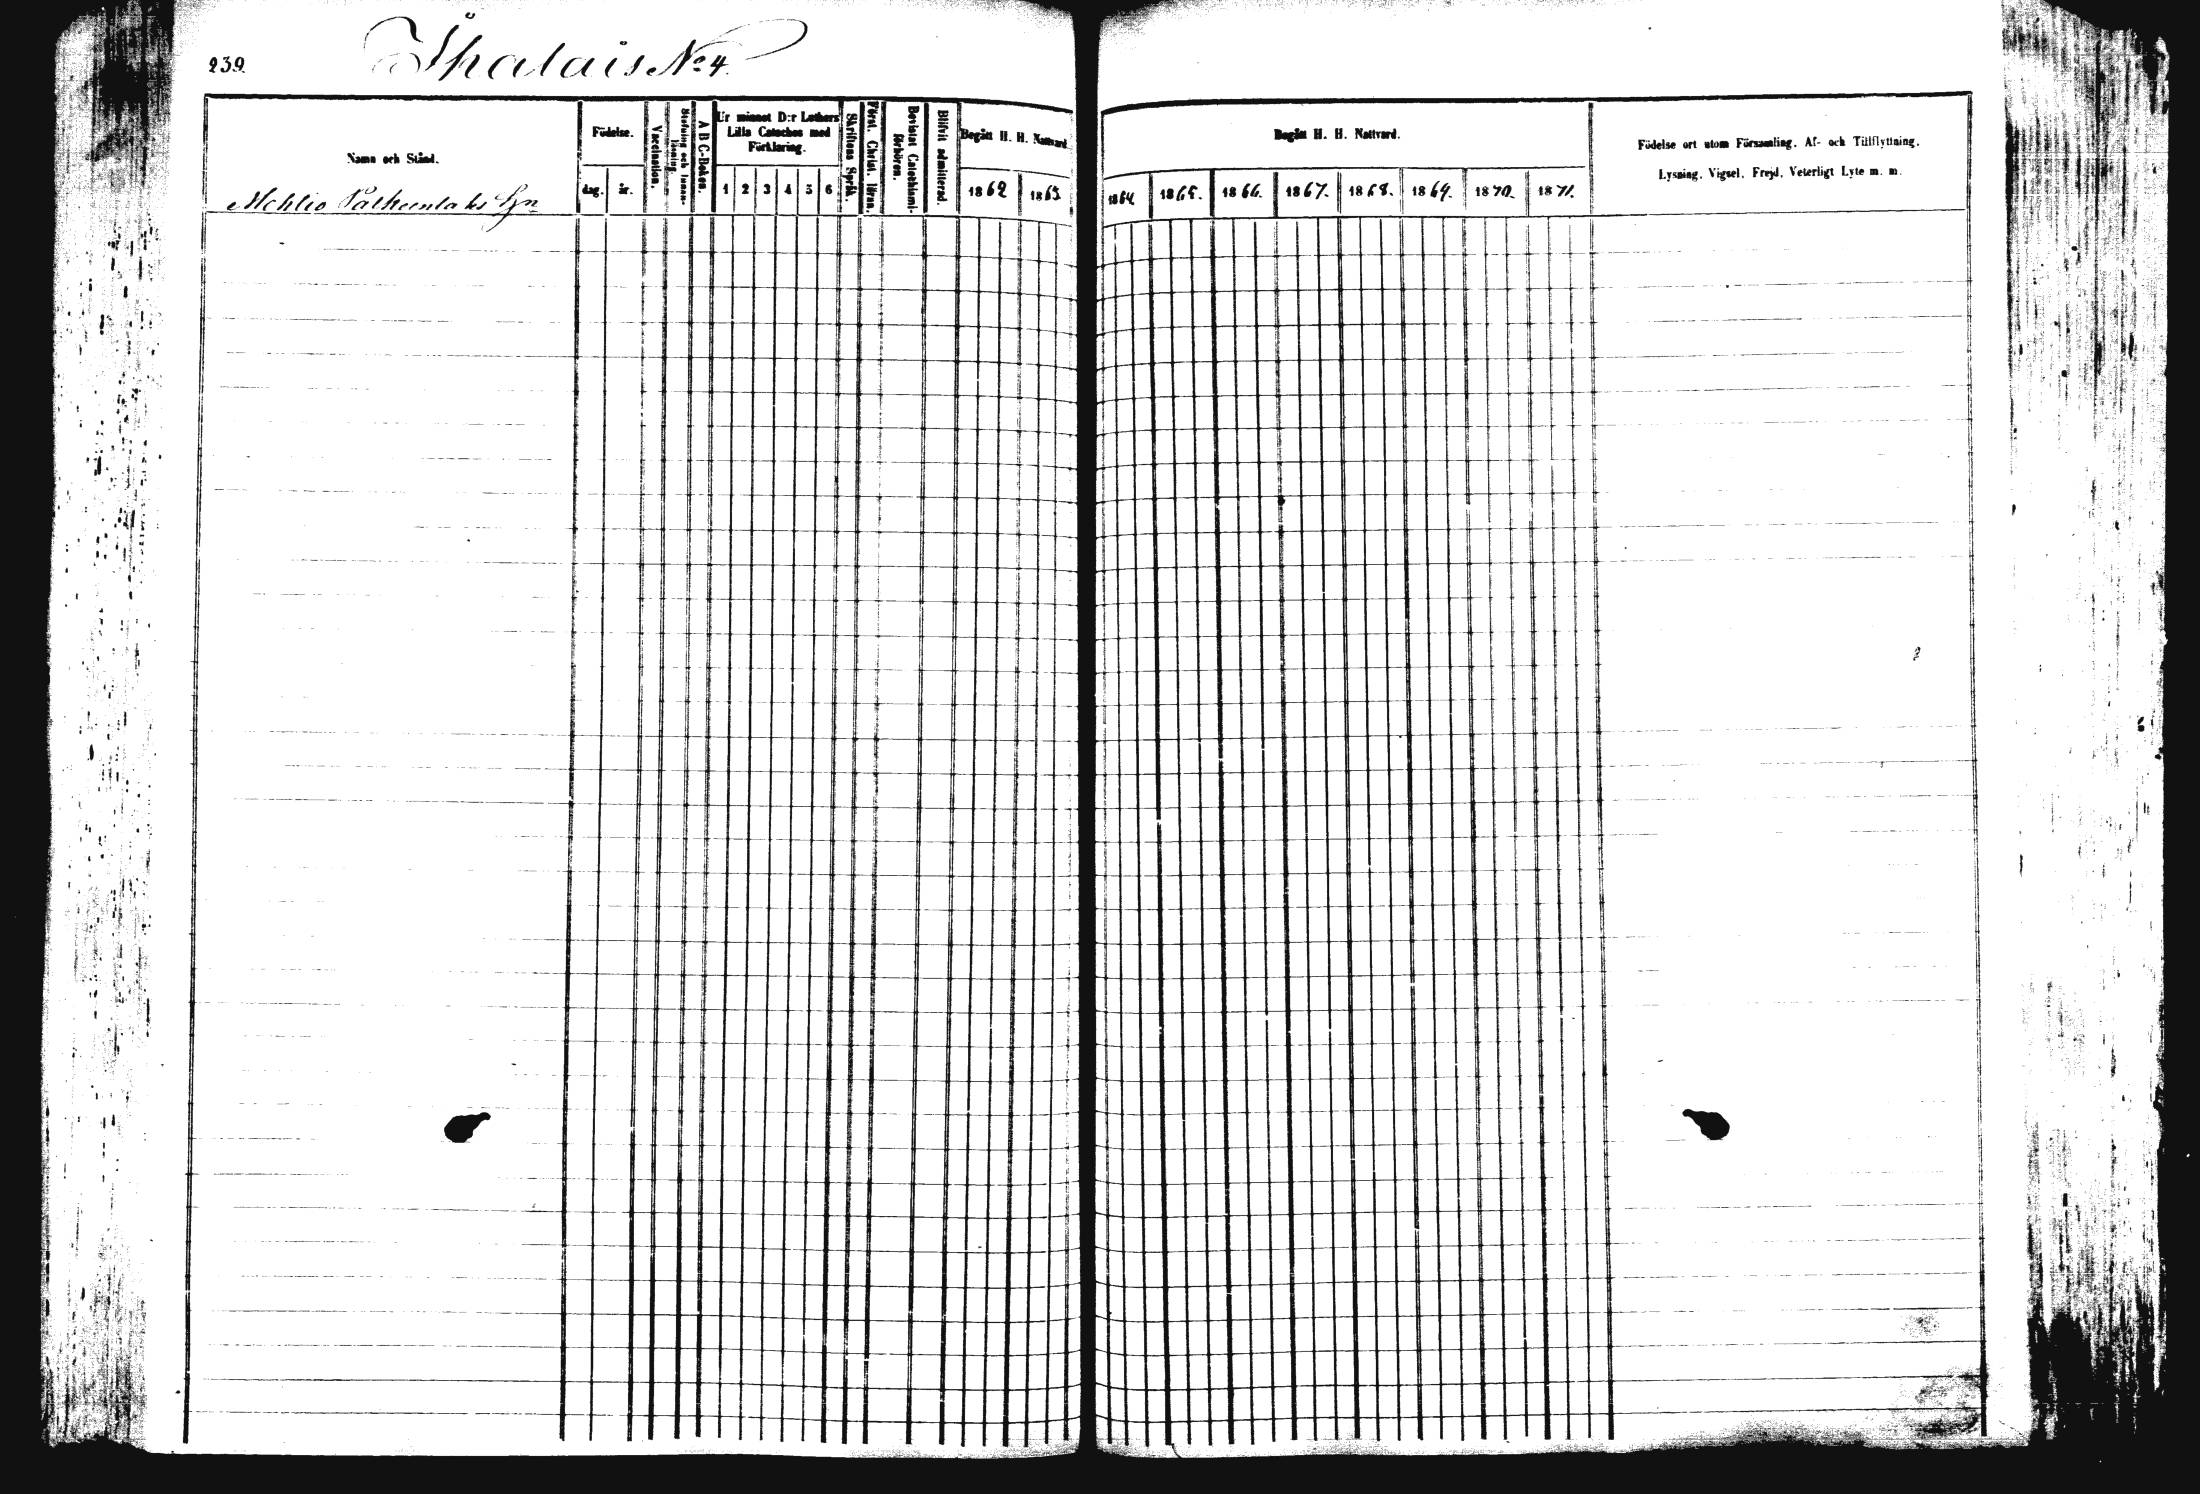 239.
Ihalais No 4.
Namn och Stånd.
Födelse.
dag. år.
Vaccination.
Stafning och Innanläsning.
A B C-Boken.
Ur minnet D:r Luthers
Lilla Cateches med
Förklaring.
1 2 3 4 5 6
Skriftens Språk.
Först. Christ. läran.
Bevistat Catechismi-
förhören.
Blifvit admitterad.
Begått H. H. Nattvard.
1862 1863.
Begått H. H. Nattvard.
1864. 1865. 1866. 1867. 1868. 1869. 1870. 1871.
Födelse ort utom Församling, Af- och Tillflyttning,
Lysning, Vigsel, Frejd, Veterligt Lyte m. m.